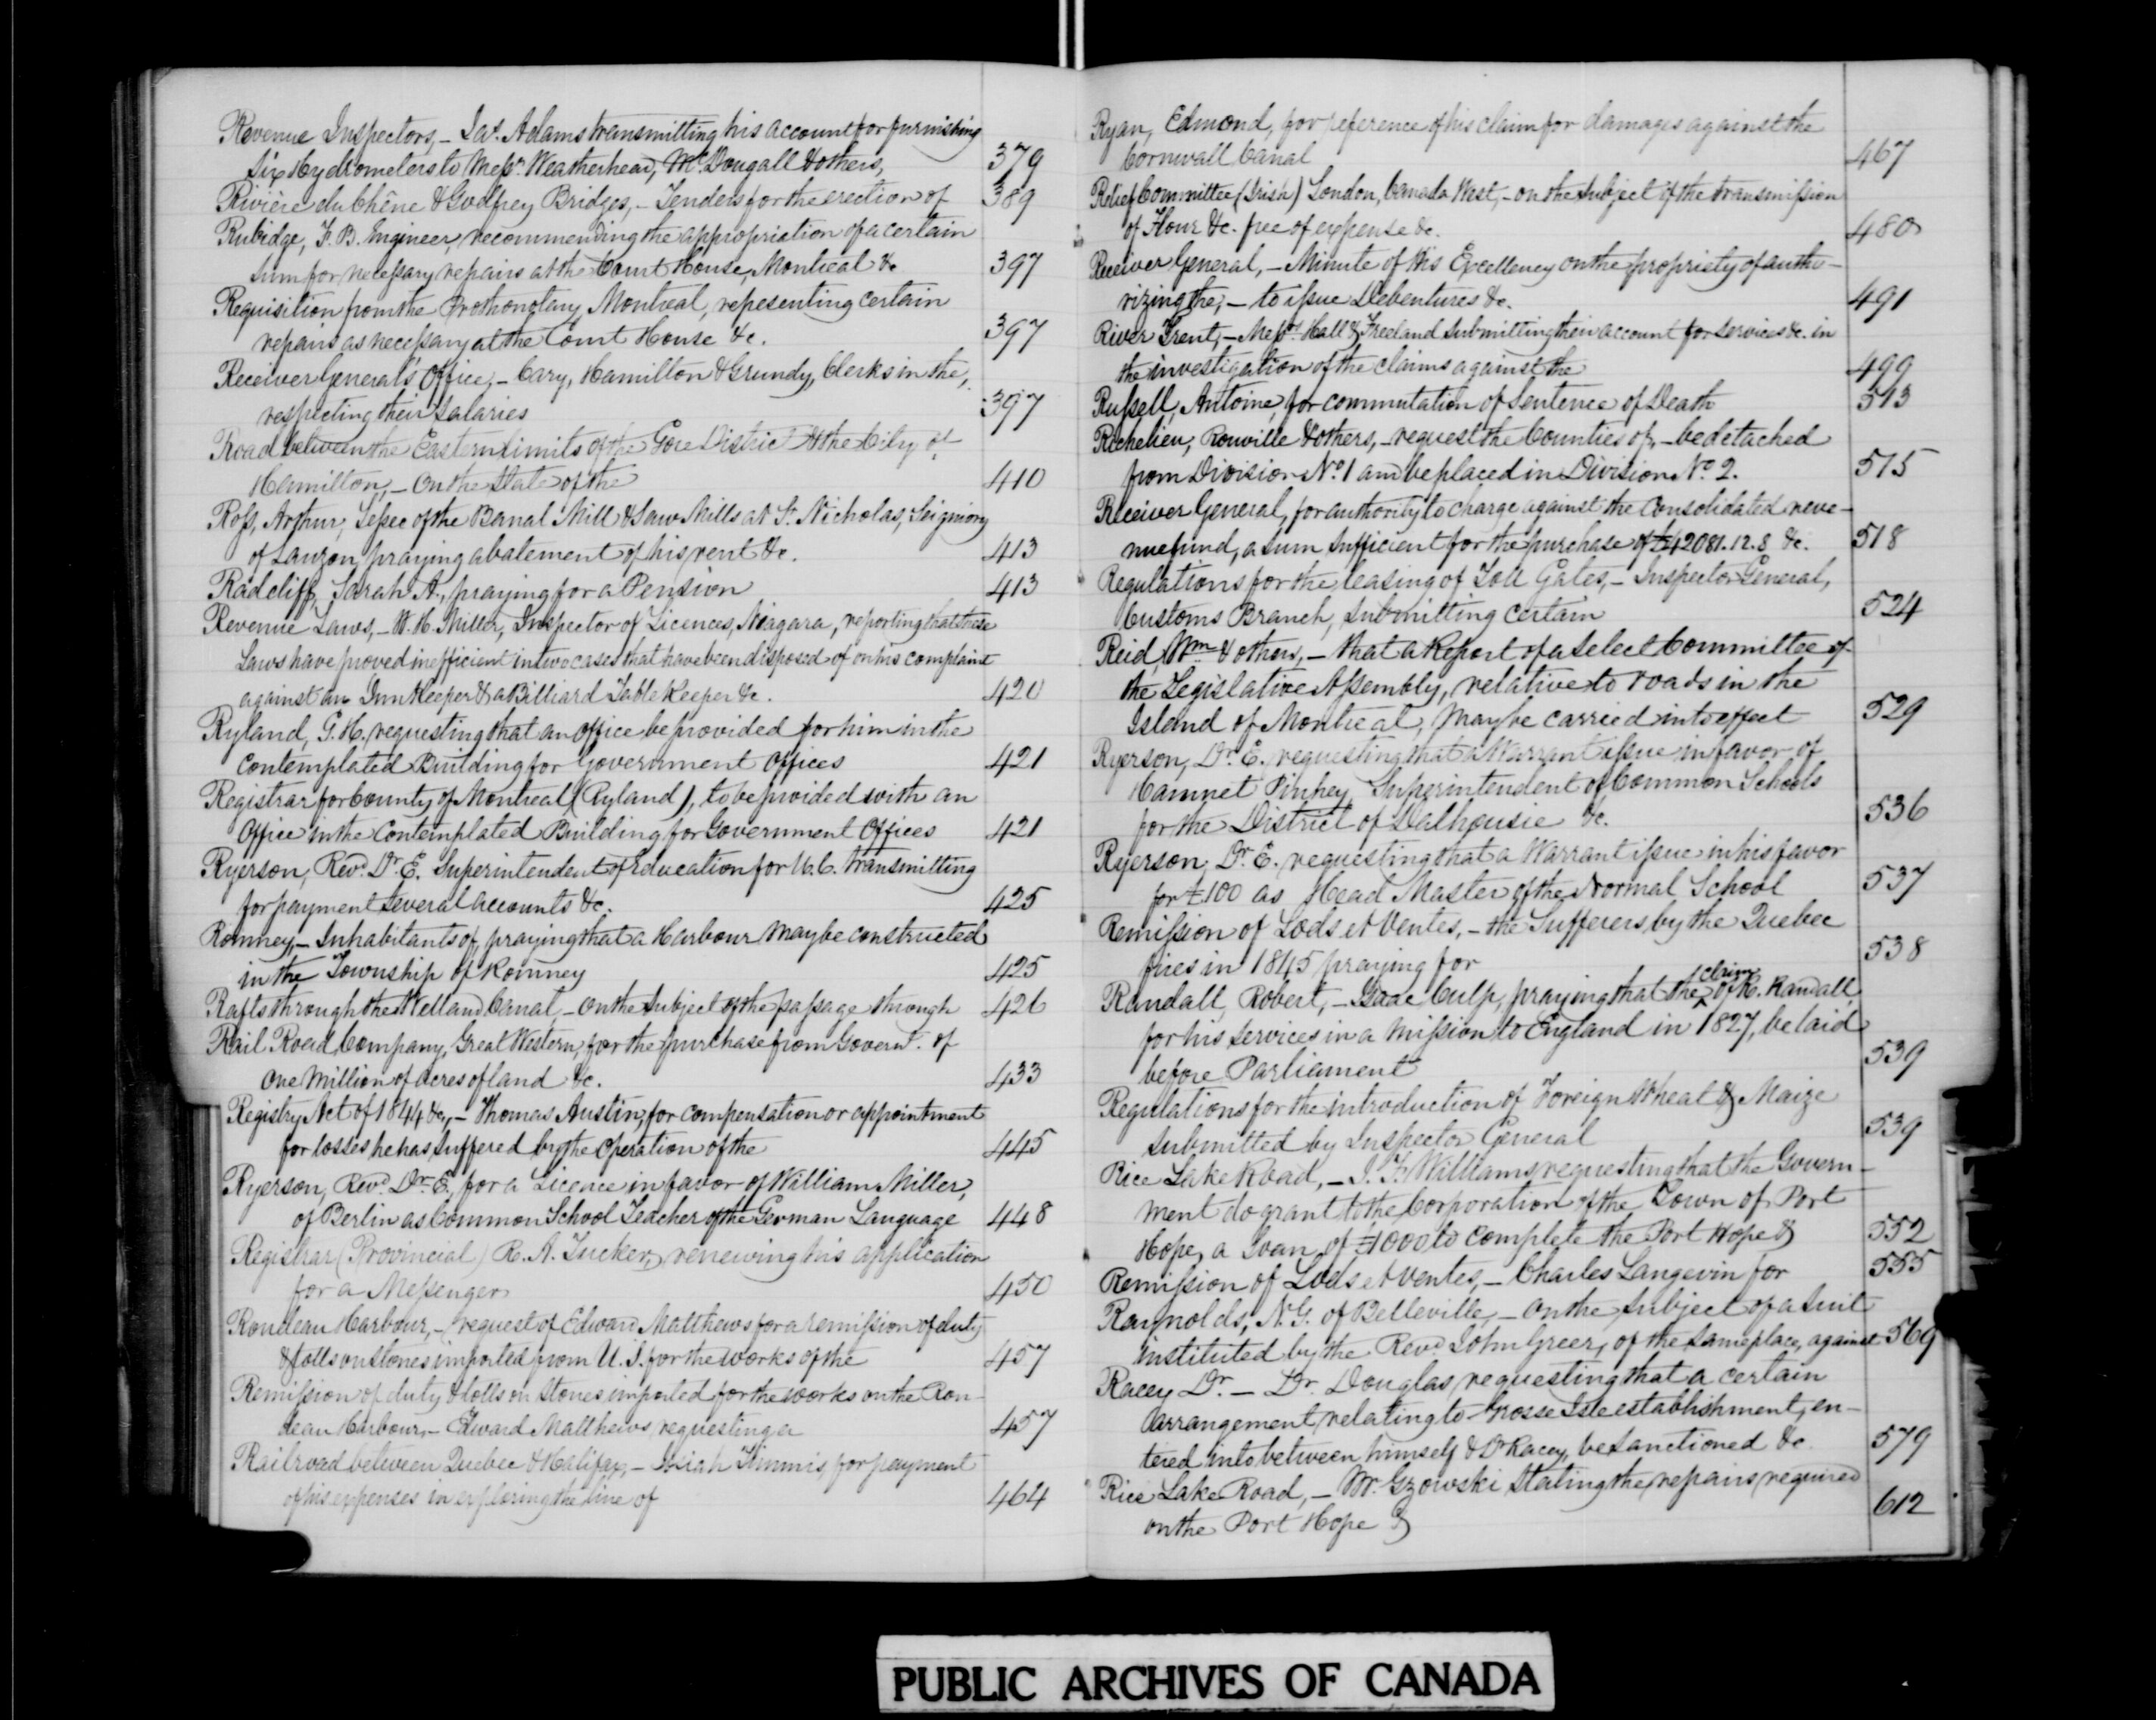 Revenue Inspectors,- Jas. Adams transmitting his account for furnishing
six Hydrometers to Messrs. Weatherhead, McDougall & others, 379
Rivière du Chêne & Godfrey Bridges,- Tenders for the erection of 389
Rubidge, F. B. Engineer, recommending the appropriation of a certain
sum for necessary repairs at the Court House, Montreal &c 397
Requisition from the Prothonotary Montreal, representing certain
repairs as necessary at the Court House &c. 397
Receiver General's Office,- Cary, Hamilton & Grundy, Clerks in the,
respecting their Salaries 397
Road between the Eastern limits of the Gore District & the City of
Hamilton,- On the State of the 410
Ross, Arthur, Lessee of the Banal Mill & Saw Mills at St. Nicholas, Seigniory
of Lauzon, praying abatement of his rent &c. 413
Radcliff, Sarah A., praying for a Pension 413
Revenue Laws,- W. H. Miller, Inspector of Licences, Niagara, reporting that these
Laws have proved inefficient in two cases that have been disposed of on his complaint
against an Inn Keeper & a Billiard Table Keeper &c. 420
Ryland, G. H. requesting that an office be provided for him in the
Contemplated Building for Government Offices 421
Registrar for County of Montreal (Ryland), to be provided with an
Office in the Contemplated Building for Government Offices 421
Ryerson, Revd. Dr. E. Superintendent of Education for U. C. transmitting
for payment several accounts &c. 425
Romney,- Inhabitants of, praying that a Harbour may be constructed
in the Township of Romney 425
Rafts through the Welland Canal,- On the Subject of the passage through 426
Rail Road Company, Great Western, for the purchase from Governt. of
One Million of acres of land &c. 433
Registry Act of 1844 &c,- Thomas Austin, for compensation or appointment
for losses he has suffered by the operation of the 445
Ryerson, Revd. Dr. E., for a Licence in favor of William Miller,
of Berlin as Common School Teacher of the German Language 448
Registrar (Provincial) R. A. Tucker, renewing his application
for a Messenger 450
Rondeau Harbour,- request of Edward Matthews for a remission of duty
& tolls on stones imported from U. S. for the works of the 457
Remission of duty & tolls on stones imported for the works on the Ron-
deau Harbour,- Edward Matthews requesting a 457
Railroad between Quebec & Halifax,- Timmis, for payment
of his expenses in exploring the line of 464
Ryan, Edmond, for reference of his claim for damages against the
Cornwall Canal 467
Relief Committee (Irish) London, Canada West,- on the subject of the transmission
of Flour &c. free of expense &c. 480
Receiver General,- Minute of His Excellency on the propriety of autho-
rizing the,- to issue Debentures &c. 491
River Trent,- Messrs. Hall & Freeland submitting their account for services &c. in
the investigation of the claims against the 499
Russell, Antoine, for commutation of Sentence of Death 513
Richelieu, Rouville & others,- request the Counties of,- be detached
from Division No. 1 and be placed in Division No. 2. 515
Receiver General, for authority to charge against the Consolidated reve-
nue fund, a sum sufficient for the purchase of £42081.12.8 &c. 518
Regulations for the leasing of Toll Gates,- Inspector General,
Customs Branch, submitting certain 524
Reid Wm & others,- that a Report of a Select Committee of
the Legislative Assembly, relative to roads in the
Island of Montreal, may be carried into effect 529
Ryerson, Dr. E. requesting that a Warrant issue in favor of
Hamnet Pinhey, Superintendent of Common Schools
for the District of Dalhousie &c. 536
Ryerson, Dr. E. requesting that a Warrant issue in his favor
for £100 as Head Master of the Normal School 537
Remission of Lods et Ventes,- the Sufferers by the Quebec
fires in 1845 praying for 538
Randall, Robert,- Isaac Culp, praying that the claim of R. Randall,
for his services in a mission to England in 1827, be laid
before Parliament 539
Regulations for the introduction of Foreign Wheat & Maize
submitted by Inspector General 539
Rice Lake Road,- J. T. Williams requesting that the Govern-
ment do grant to the Corporation of the Town of Port
Hope, a loan of £1000 to complete the Port Hope & 552
Remission of Lods et Ventes,- Charles Langevin for 555
Raynolds, N. G. of Belleville,- On the subject of a suit
instituted by the Revd. John Greer, of the same place, against 569
Racey Dr.- Dr. Douglas requesting that a certain
arrangement relating to Grosse Isle establishment, en-
tered into between himself & Dr Racey, be sanctioned &c. 579
Rice Lake Road,- Mr. Gzowski stating the repairs required
on the Port Hope & 612
PUBLIC ARCHIVES OF CANADA